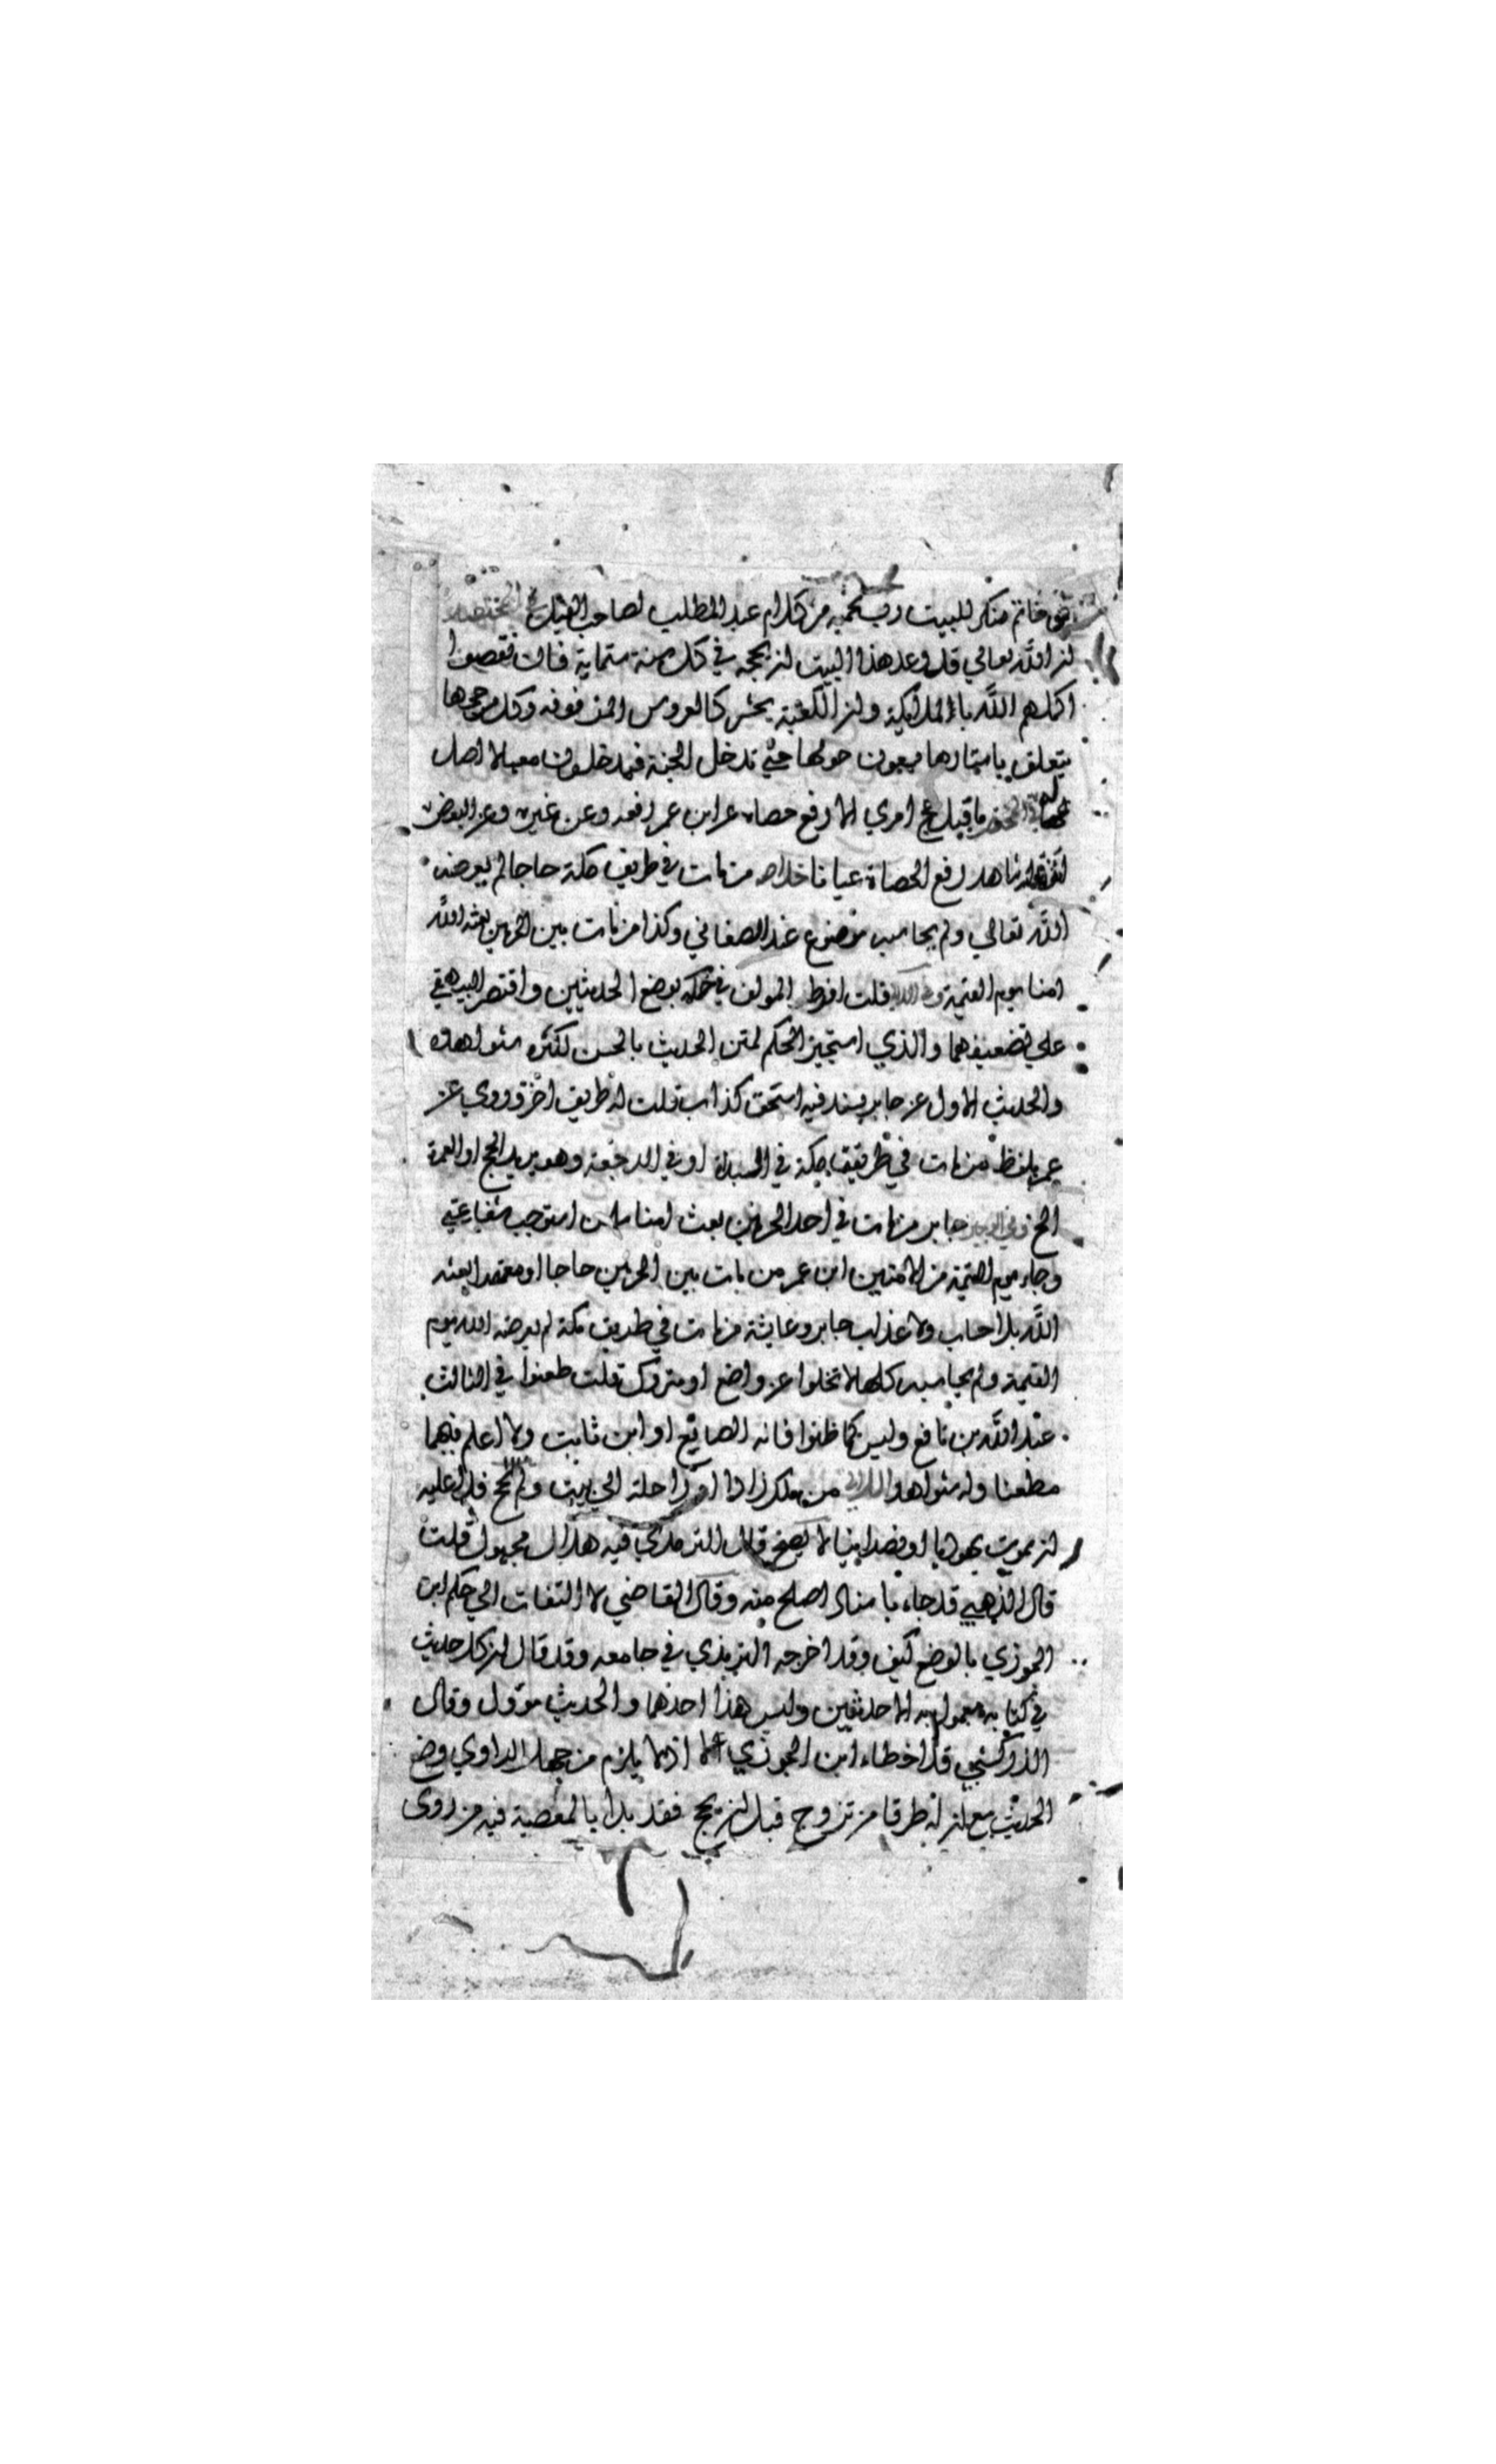 فى خاتم منكر للبيت رب يحميه من كلام عبد المطلب لصاحب الفيل في المختصر
ان الله تعالي قد وعد هذا البيت ان يحجه في كل سنة ستماية فان نقصوا
اكملهم الله باالملايكية وان الكعبة تحشر كالعروس المزفوفه وكل من حجها
يتعلق باستارها يسعون حولها حتي تدخل الجنة فيدخلون معها لا اصل
له ما قبل حج امري الا رفع حصاه عن ابن عمر رفعه وعن غيره وعن البعض
انه شاهد رفع الحصاة عيانا خلاصه من مات في طريق مكة حاجا لم يعرضه
الله تعالي ولم يحاسب موضوع عند الصغاني وكذا من مات بين الحرمين بعثه الله
امنا يوم القيمة وفي اللالي قلت افرط المولف في حكمه بوضع الحديثين واقتصر البيهقي
علي تضعيفهما والذي استجيز الحكم لمتن الحديث بالحسن لكثره شواهده
والحديث الاول عن جابر بسند فيه اسحق كذاب قلت له طريق اخر وروي عن
عمر بلفظ من مات في طريق مكة في البداة او في الرجعة وهو يريد الحج او العمرة
الخ وفي الوجيز جابر من مات في احد الحرمين بعث امنا سلمان استوجب شفاعتي
وجاء يوم القيمة من الامنين ابن عمر من مات بين الحرمين حاجا او معتمرا بعثه
الله بلا حساب ولا عذاب جابر وعايشة من مات في طريق مكة لم يعرضه الله يوم
القيمة ولم يحاسبه كلها لا تخلوا عن واضع او متروك قلت طعنوا في الثالث
عبد الله بن نافع وليس كما ظنوا فانه الصايغ او ابن ثابت ولا اعلم فيهما
مطعنا وله شواهد اللالي من يملك زادا او راحلة الي بيت ولم يحج فلا عليه
ان يموت يهوديا او نصرانيا لا يصح قال الترمذي فيه هلال مجهول قلت
قال الذهبي قد جاء باسناد اصلح منه وقال القاضي لا التفات الي حكم ابن
الجوزي بالوضع كيف وقد اخرجه الترمذي في جامعه وقد قال ان كل حديث
في كتابه معمول به الا حديثين وليس هذا احدهما والحديث موول وقال
الزركشي قد اخطاء ابن الجوزي اذ لا يلزم من جهل الراوي وضع
الحديث مع ان له طرقا من تزوج قبل ان يحج فقد بدا بالمعصية فيه من روى